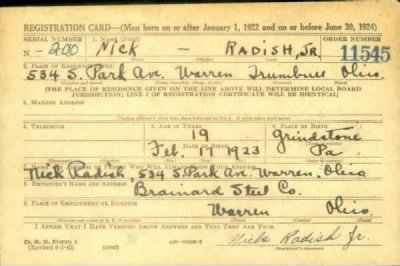 REGISTRATION CARD—(Men born on or after January 1, 1922 and on or before June 30, 1924)
SERIAL NUMBER 1. NAME (Print) ORDER NUMBER
N-200 NICK — RADISH, JR 11545
2. PLACE OF RESIDENCE (Print)
534 S. Park Ave, Warren Trumbull Ohio
[THE PLACE OF RESIDENCE GIVEN ON THE LINE ABOVE WILL DETERMINE LOCAL BOARD
JURISDICTION; LINE 2 OF REGISTRATION CERTIFICATE WILL BE IDENTICAL]
3. MAILING ADDRESS
4. TELEPHONE 5. AGE IN YEARS 6. PLACE OF BIRTH
19 Grindstone
DATE OF BIRTH
Feb. 17 1923 Pa.
WHO WILL ALWAYS KNOW YOUR ADDRESS
Nick Radish, 534 S. Park Ave. Warren, Ohio
8. EMPLOYER'S NAME AND ADDRESS
Brainard Steel Co.
9. PLACE OF EMPLOYMENT OR BUSINESS
Warren Ohio.
I AFFIRM THAT I HAVE VERIFIED ABOVE ANSWERS AND THAT THEY ARE TRUE.
D. S. S. Form 1
Nick Radish Jr.